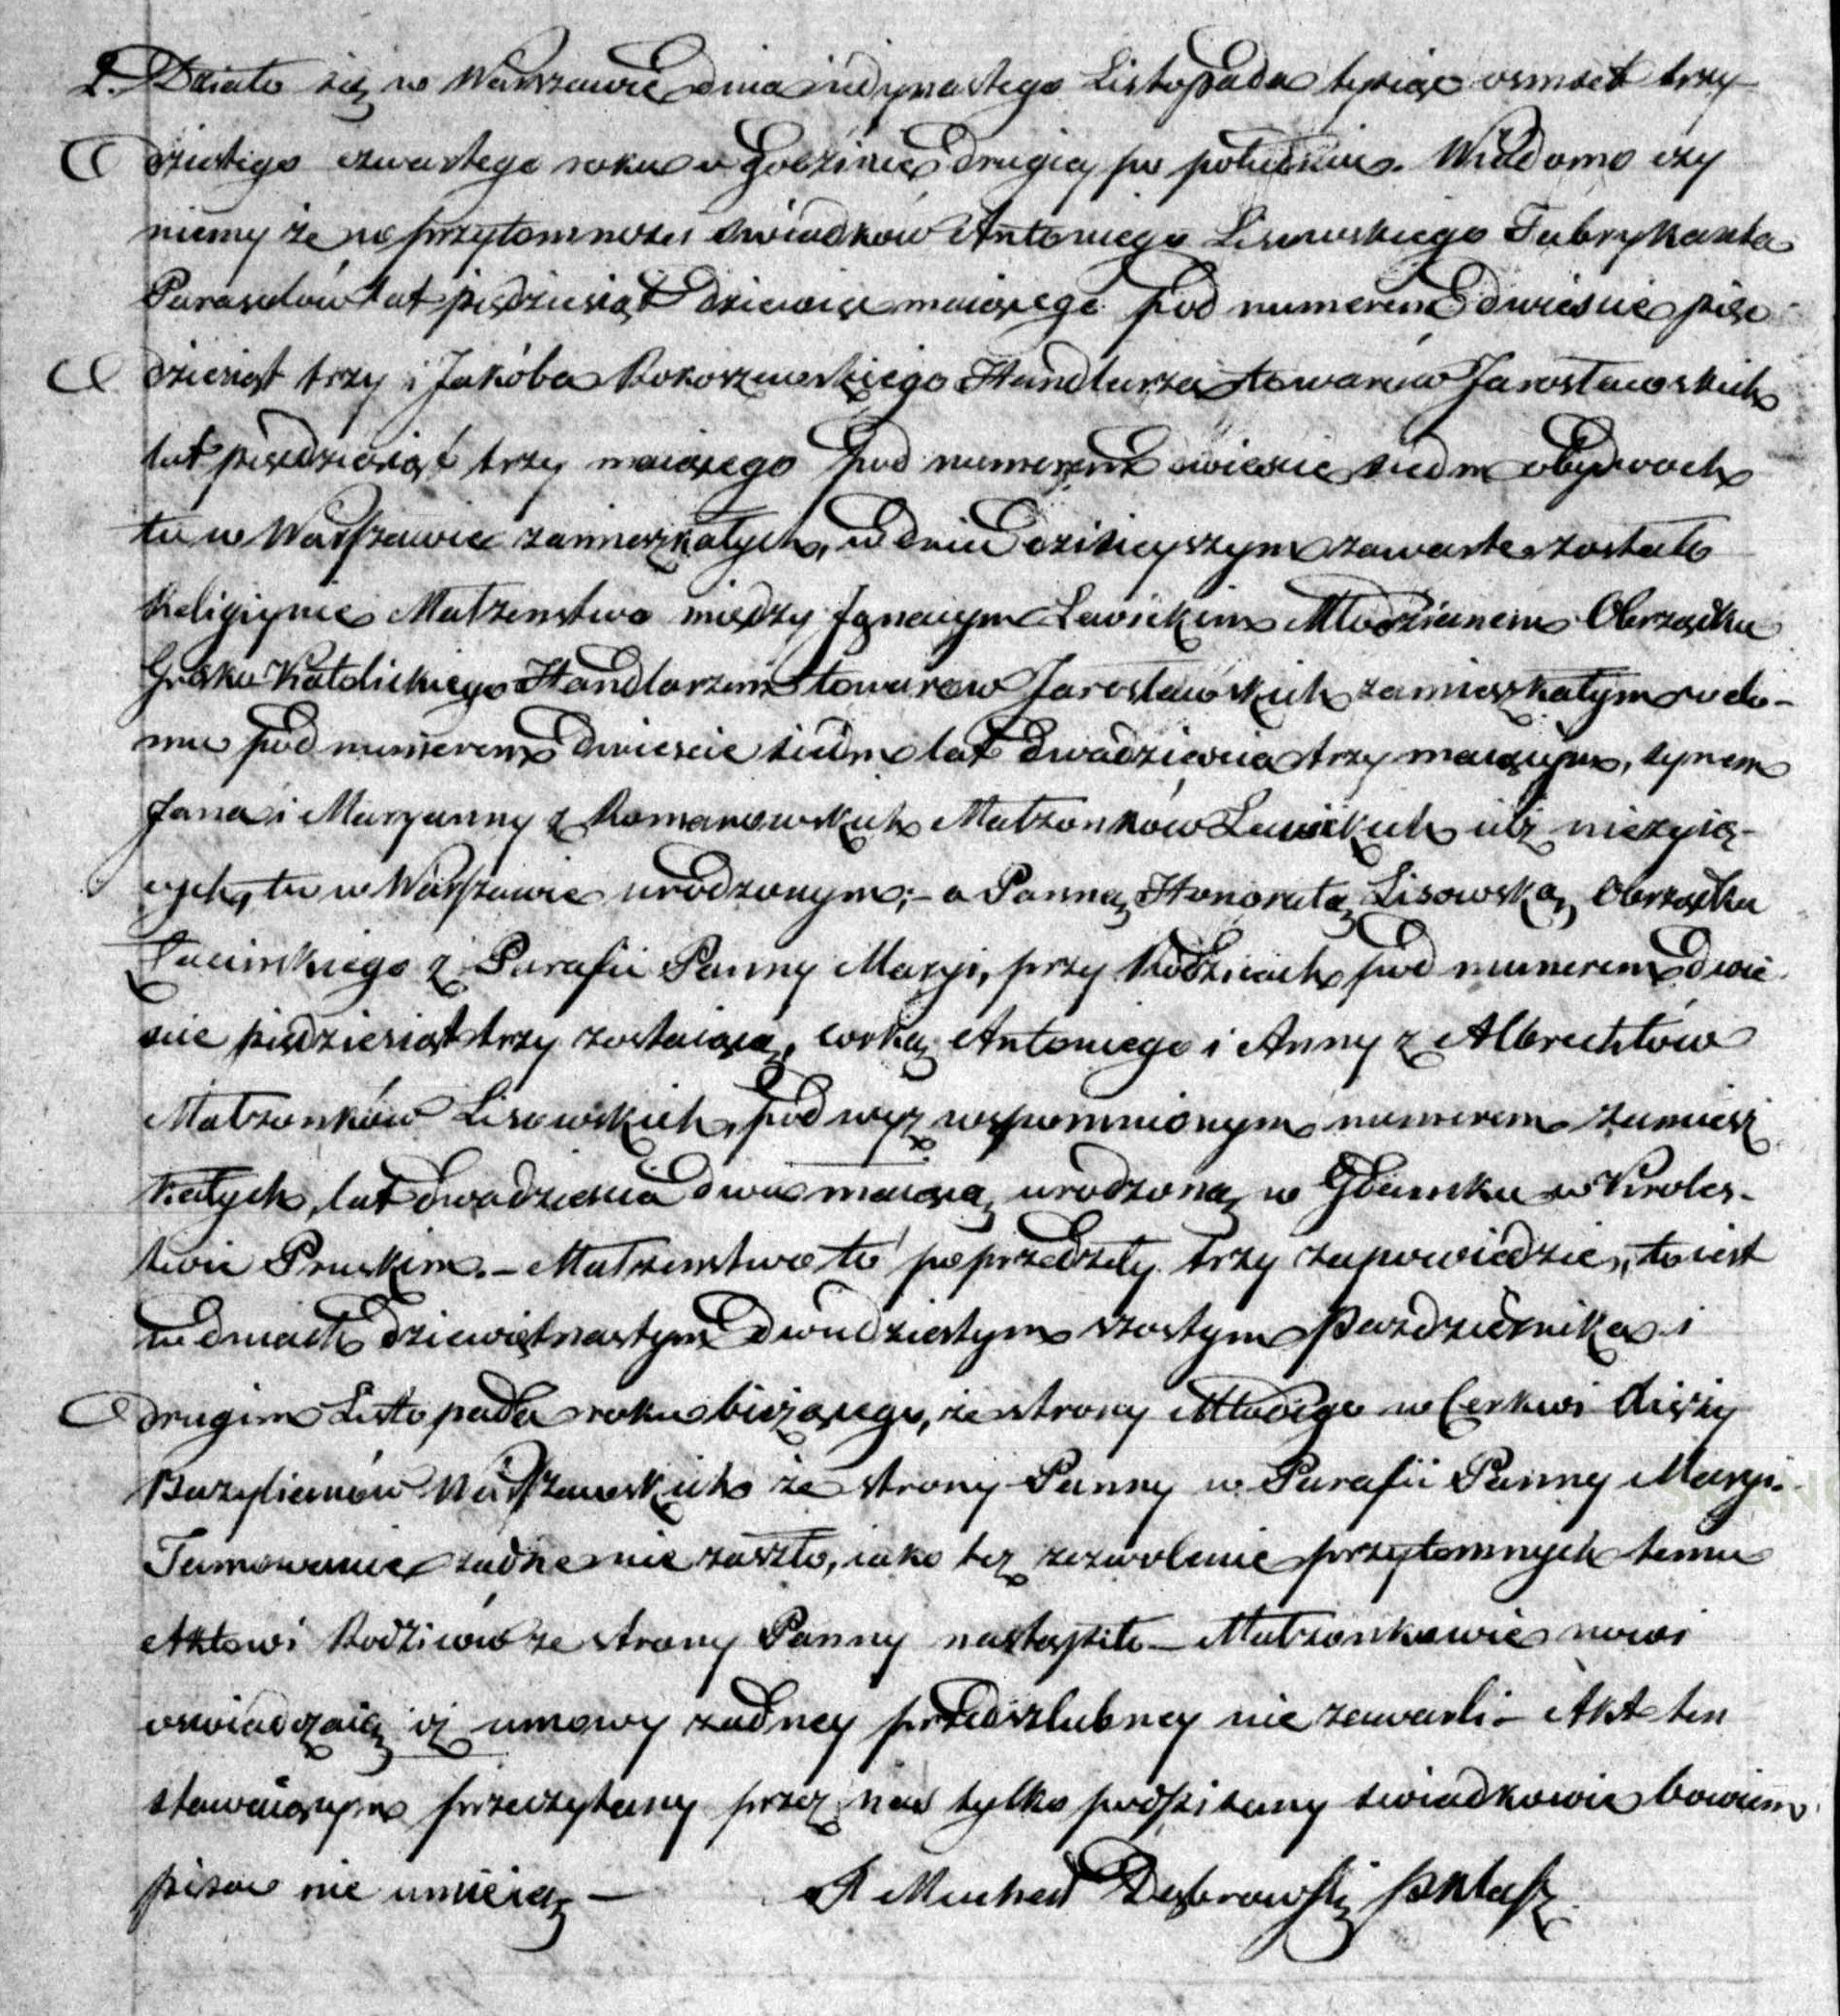 2. Działo się w Warszawie dnia iedynastego Listopada tysiąc osmset trzy
dziestego czwartego roku o godzinie drugiey po południu. Wiadomo czy
niemy że w przytomności świadków Antoniego Lisowskiego Fabrykanta
Parasolów lat piędziesiąt dziewięć maiącego pod numerem dwieście pięć
dziesiąt trzy i Jakóba Rokoszewskiego Handlarza towarów Jarosławskich
lat pięędziesiąt trzy maiącego pod numerem dwieście siedm obydwóch
tu w Warszawie zamieszkałych, w dniu dzisieyszym zawarte zostało
Religiyne Małżeństwo między Ignacym Lewickim Młodzianem Obrządku
Grecko Katolickiego Handlarzem towarow Jarosławskich zamieszkałym w do-
mu pod numerem dwieście siedm lat dwadzieścia trzy maiącym, synem
Jana i Maryanny z Romanowskich Małżonków Lewickich iuż nieżyią-
cych, tu w Warszawie urodzonym; - a Panną Honoratą Lisowską, Obrządku
Łacinskiego z Parafii Panny Maryi, przy Rodzicach pod numerem dwie
ście pięćdziesiąt trzy zostaiącą, corką Antoniego i Anny z Albrechtów
Małżonków Lisowskich, pod wyz wspomnionym numerem zamiesz
kałych, lat dwadzieścia dwa maiącą urodzoną w Gdansku w Króles-
twie Pruskim. - Małżenstwo to poprzedziły trzy zapowiedzie, to iest
w dniach dziewiętnastym dwudziestym szostym Pazdziernika i
drugim Listopada roku bieżącego, ze strony Młodego w Cerkwi Xięży
Bazylianów Warszawskich ze strony Panny w Parafii Panny Maryi.
Tamowanie żadne nie zaszło, iako też zezwolenie przytomnych temu
Aktowi Rodziców ze strony Panny nastąpiło - Małżonkowie nowi
oswiadczaią iż umowy żadney przedszlubney nie zawarli - Akt ten
stawaiącym przeczytany przez nas tylko podpisany świadkowie bowiem
pisać nie umieią -
X Michał Dąbrowski